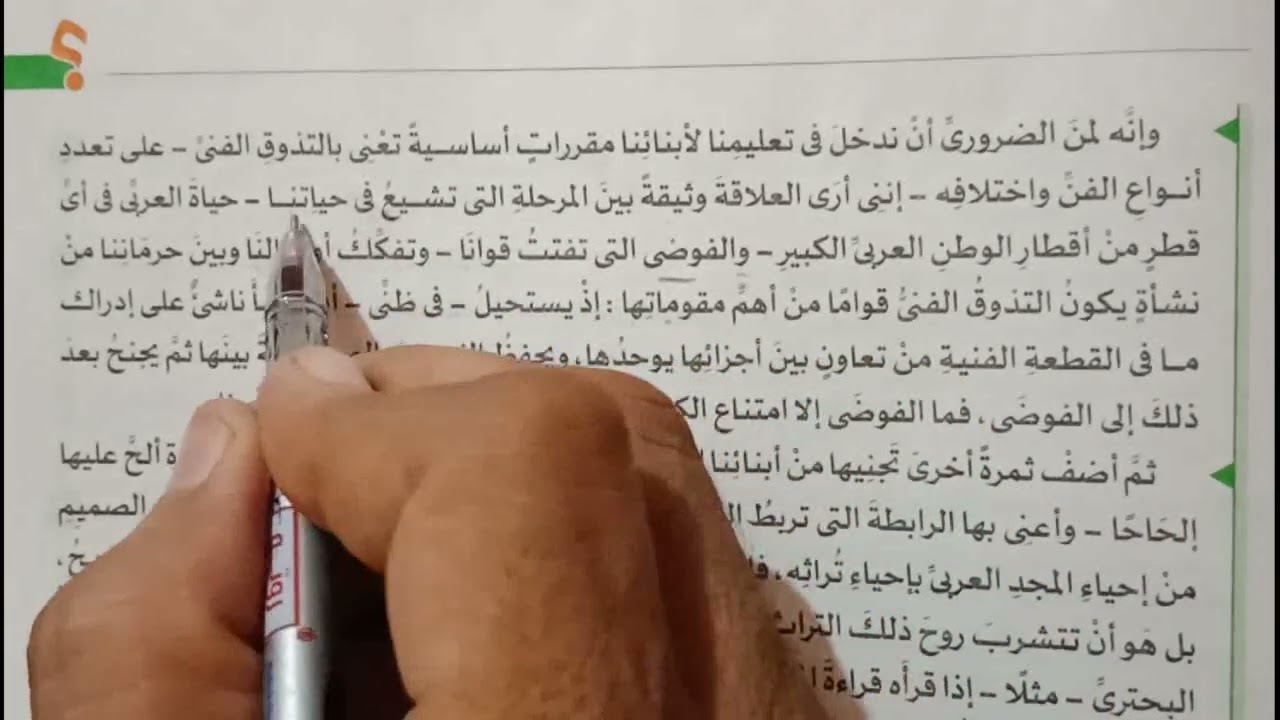 ؟
وإنَّه لمنَ الضرورىِّ أنْ ندخلَ فى تعليمِنا لأبنائِنا مقرراتٍ أساسيةً تعْنى بالتذوقِ الفنىِّ – على تعددِ
أنواعِ الفنِّ واختلافِه – إننِى أرَى العلاقةَ وثيقةً بينَ المرحلةِ التى تشيعُ فى حياتِنا – حياةَ العربىِّ فى أىِّ
قطرٍ منْ أقطارِ الوطنِ العربىِّ الكبيرِ – والفوضى التى تفتتُ قوانَا – وتفكِّكُ لنَا وبينَ حرمَانِنا منْ
نشأةٍ يكونُ التذوقُ الفنىُّ قوامًا منْ أهمِّ مقوماتِها : إذْ يستحيلُ – فى ظنِّى – ناشئٌ على إدراك
ما فى القطعةِ الفنيةِ منْ تعاونٍ بينَ أجزائِها يوحدُها، ويحفظُ بينَها ثمَّ يجنحُ بعدَ
ذلكَ إلى الفوضَى، فما الفوضَى إلا امتناع
ثمَّ أضفْ ثمرةً أخرىَ تَجنِيها منْ أبنائِنا ألحَّ عليها
إلحَاحًا – وأعنِى بها الرابطةَ التى تربطُ الصميمِ
منْ إحياءِ المجدِ العربىِّ بإحياءِ تُراثِه،
بل هَو أنْ تتشربَ روحَ ذلكَ التراث
البحترىِّ – مثلًا – إذا قرأَه قراءةَ